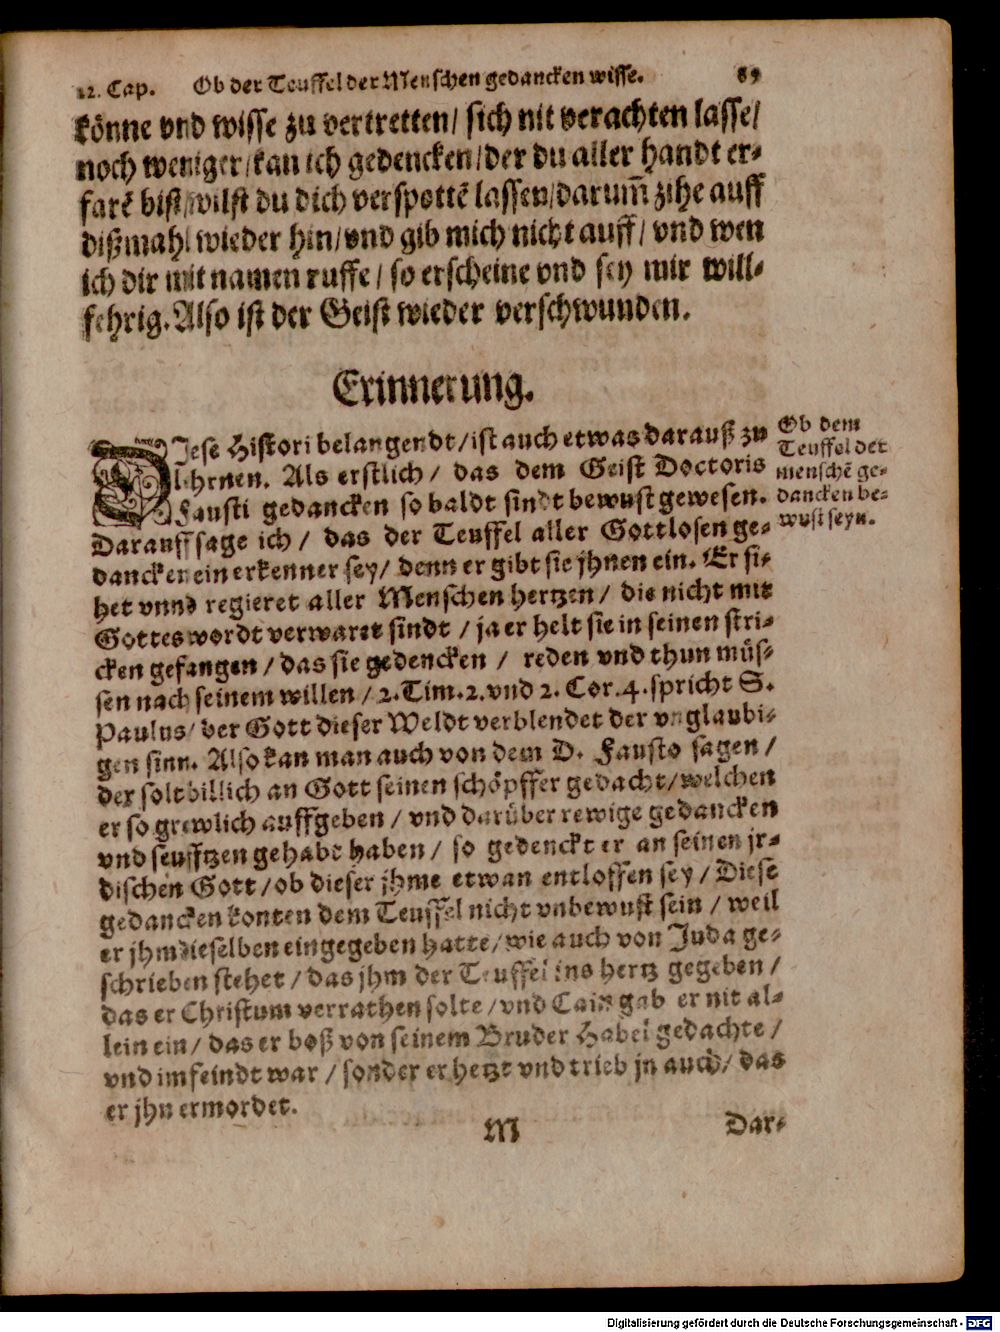 12. Cap. Ob der Teuffel der Menschen gedancken wisse. 89
könne vnd wisse zu vertretten/ sich nit verachten lasse/
noch weniger/kan ich gedencken/der du aller handt er-
farẽ bist/wilst du dich verspottẽ lassen/darum̃ zihe auff
dißmahl wieder hin/vnd gib mich nicht auff/ vnd wen
ich dir mit namen ruffe/ so erscheine vnd sey mir will-
fehrig. Also ist der Geist wieder verschwunden.
Erinnerung.
DIese Histori belangendt/ist auch etwas darauß zu
lehrnen. Als erstlich/ das dem Geist Doctoris
Fausti gedancken so baldt sindt bewust gewesen.
Darauff sage ich/ das der Teuffel aller Gottlosen ge-
dancken ein erkenner sey/ denn er gibt sie jhnen ein. Er si-
het vnnd regieret aller Menschen hertzen/ die nicht mit
Gottes wordt verwaret sindt/ ja er helt sie in seinen stri-
cken gefangen/ das sie gedencken/ reden vnd thun müs-
sen nach seinem willen/ 2. Tim. 2. vnd 2. Cor. 4. spricht S.
Paulus/ der Gott dieser Weldt verblendet der vnglaubi-
gen sinn. Also kan man auch von dem D. Fausto sagen/
der solt billich an Gott seinen schöpffer gedacht/ welchen
er so grewlich auffgeben/ vnd darüber rewige gedancken
vnd seufftzen gehabt haben/ so gedenckt er an seinen jr-
dischen Gott/ ob dieser jhme etwan entloffen sey/ Diese
gedancken konten dem Teuffel nicht vnbewust sein/ weil
er jhm dieselben eingegeben hatte/ wie auch von Juda ge-
schrieben stehet/ das jhm der Teuffel ins hertz gegeben/
das er Christum verrathen solte/ vnd Cain gab er nit al-
lein ein/ das er boß von seinem Bruder Habel gedachte/
vnd im feindt war/ sonder er hetzt vnd trieb jn auch/ das
er jhn ermordet.
Ob dem
Teuffel der
menschẽ ge-
dancken be-
wust seyn.
M Dar-
Digitalisierung gefördert durch die Deutsche Forschungsgemeinschaft - DFG